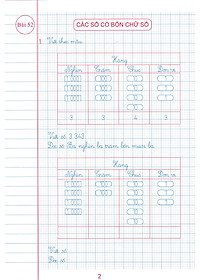 Bài 52
CÁC SỐ CÓ BỐN CHỮ SỐ
1. Viết theo mẫu.
Hàng
Nghìn Trăm Chục Đơn vị
1 000 100 10 1
1 000 100 10 1
1 000 100 10 1
10
3 3 4 3
Viết số: 3 343
Đọc số: Ba nghìn ba trăm bốn mươi ba.
Hàng
Nghìn Trăm Chục Đơn vị
1 000 100 10 1
1 000 100 10 1
1 000 10
1 000 10
10
Viết số:
Đọc số:
2